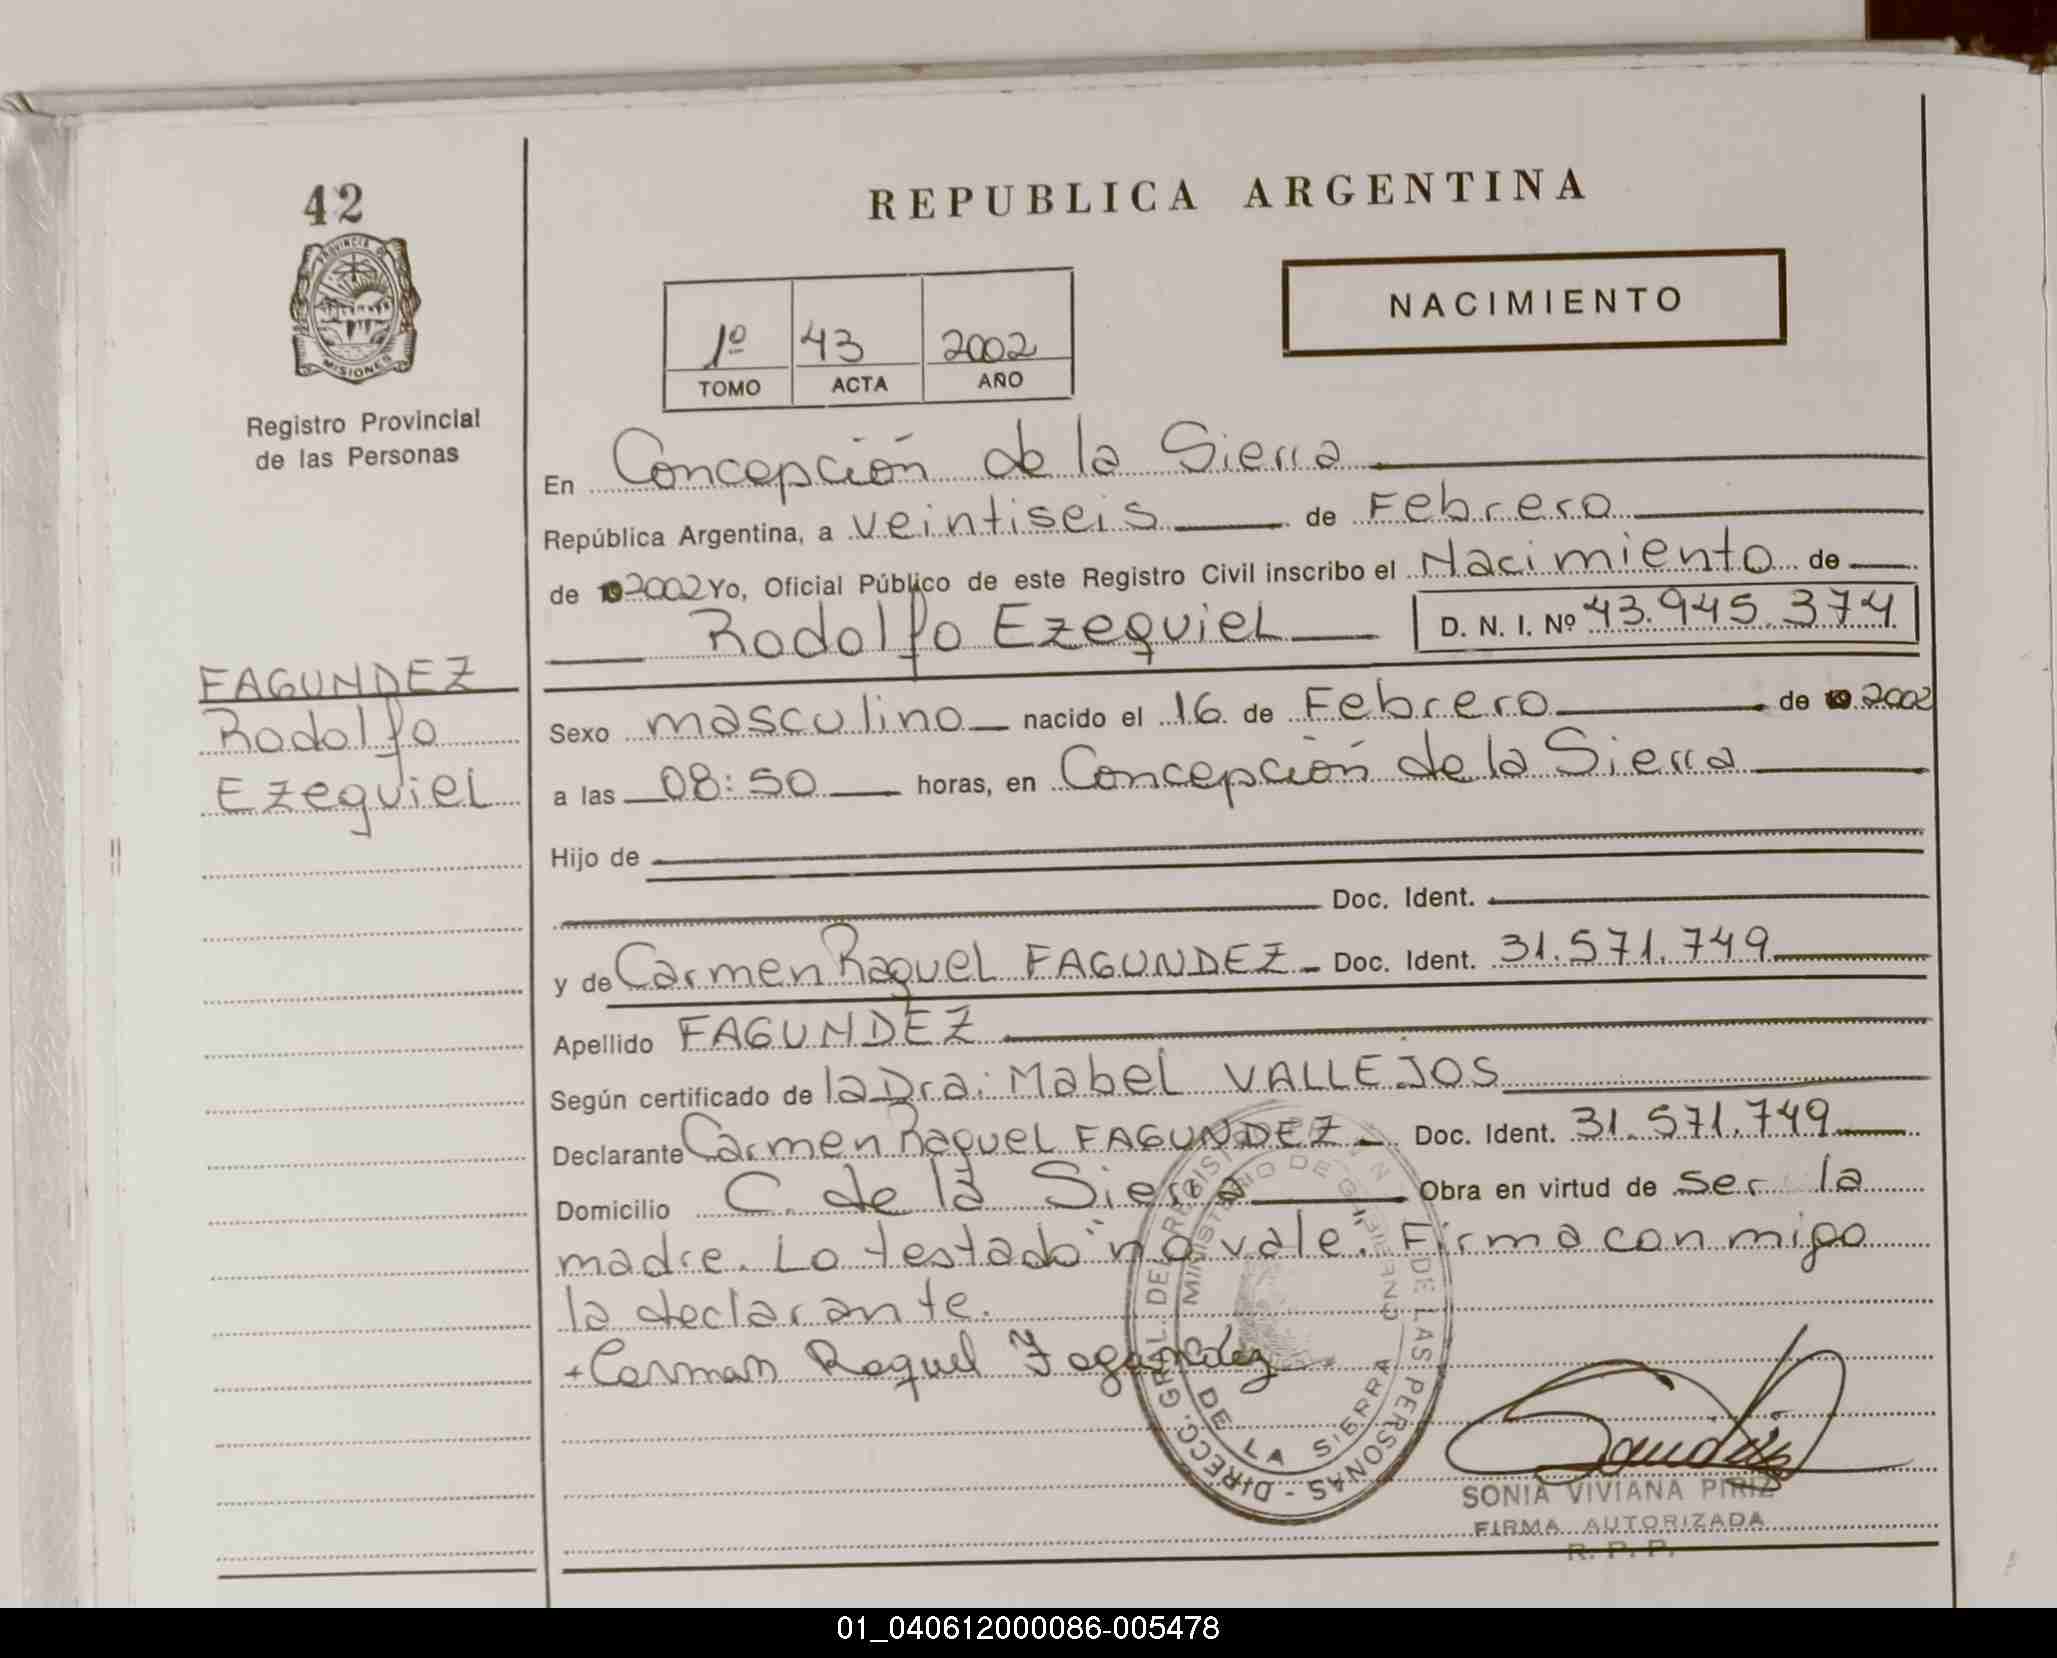 42
PROVINCIA DE
MISIONES
Registro Provincial
de las Personas
FAGUNDEZ
Rodolfo
Ezequiel
REPUBLICA ARGENTINA
NACIMIENTO
1º 43 2002
TOMO ACTA AÑO
En Concepción de la Sierra
República Argentina, a veintiseis de Febrero
de 2002 Yo, Oficial Público de este Registro Civil inscribo el Nacimiento de
Rodolfo Ezequiel D. N. I. Nº 43.945.374
Sexo masculino nacido el 16 de Febrero de 2002
a las 08:50 horas, en Concepción de la Sierra
Hijo de
Doc. Ident.
y de Carmen Raquel FAGUNDEZ Doc. Ident. 31.571.749
Apellido FAGUNDEZ
Según certificado de la Dra: Mabel VALLEJOS
Declarante Carmen Raquel FAGUNDEZ Doc. Ident. 31.571.749
Domicilio C. de la Sierra Obra en virtud de ser la
madre. Lo testado "no vale". Firma conmigo
la declarante.
+ Carman Raquel Fagundez
DIRECC. GRAL. DEL REGISTRO DE LAS PERSONAS
MINISTERIO DE GOBIERNO
DE LA SIERRA
SONIA VIVIANA PIRIZ
FIRMA AUTORIZADA
R. P. P.
01_040612000086-005478